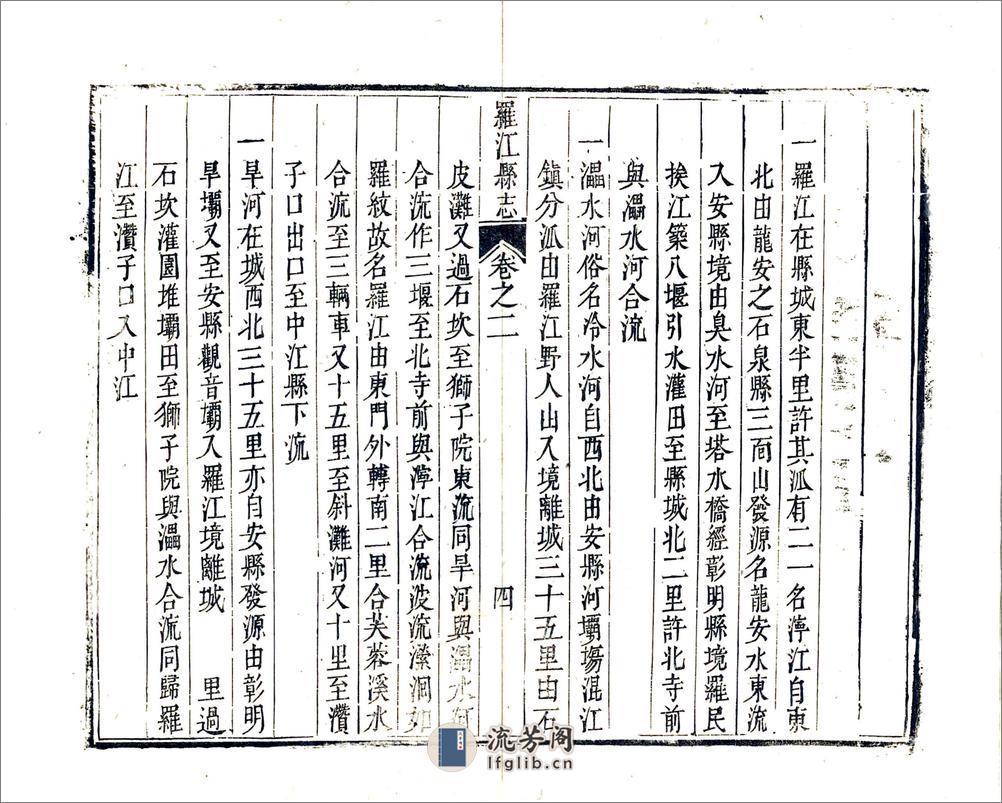 一羅江在縣城東半里許其泒有二一名濘江自東
北由龍安之石泉縣三面山發源名龍安水東流
入安縣境由臭水河至塔水橋經彰明縣境羅民
挨江築八堰引水灌田至縣城北二里許北寺前
與溫水河合流
一溫水河俗名冷水河自西北由安縣河壩塲混江
鎮分泒由羅江野人山入境離城三十五里由石
羅江縣志 卷之二 四
皮灘又過石坎至獅子院東流同旱河與溫水河
合流作三堰至北寺前與濘江合流波流瀠洄如
羅紋故名羅江由東門外轉南二里合芙蓉溪水
合流至三輛車又十五里至斜灘河又十里至灒
子口出口至中江縣下流
一旱河在城西北三十五里亦自安縣發源由彰明
旱壩又至安縣觀音壩入羅江境離城 里過
石坎灌園堆壩田至獅子院與溫水合流同歸羅
江至灒子口入中江
流芳阁
lfglib.cn